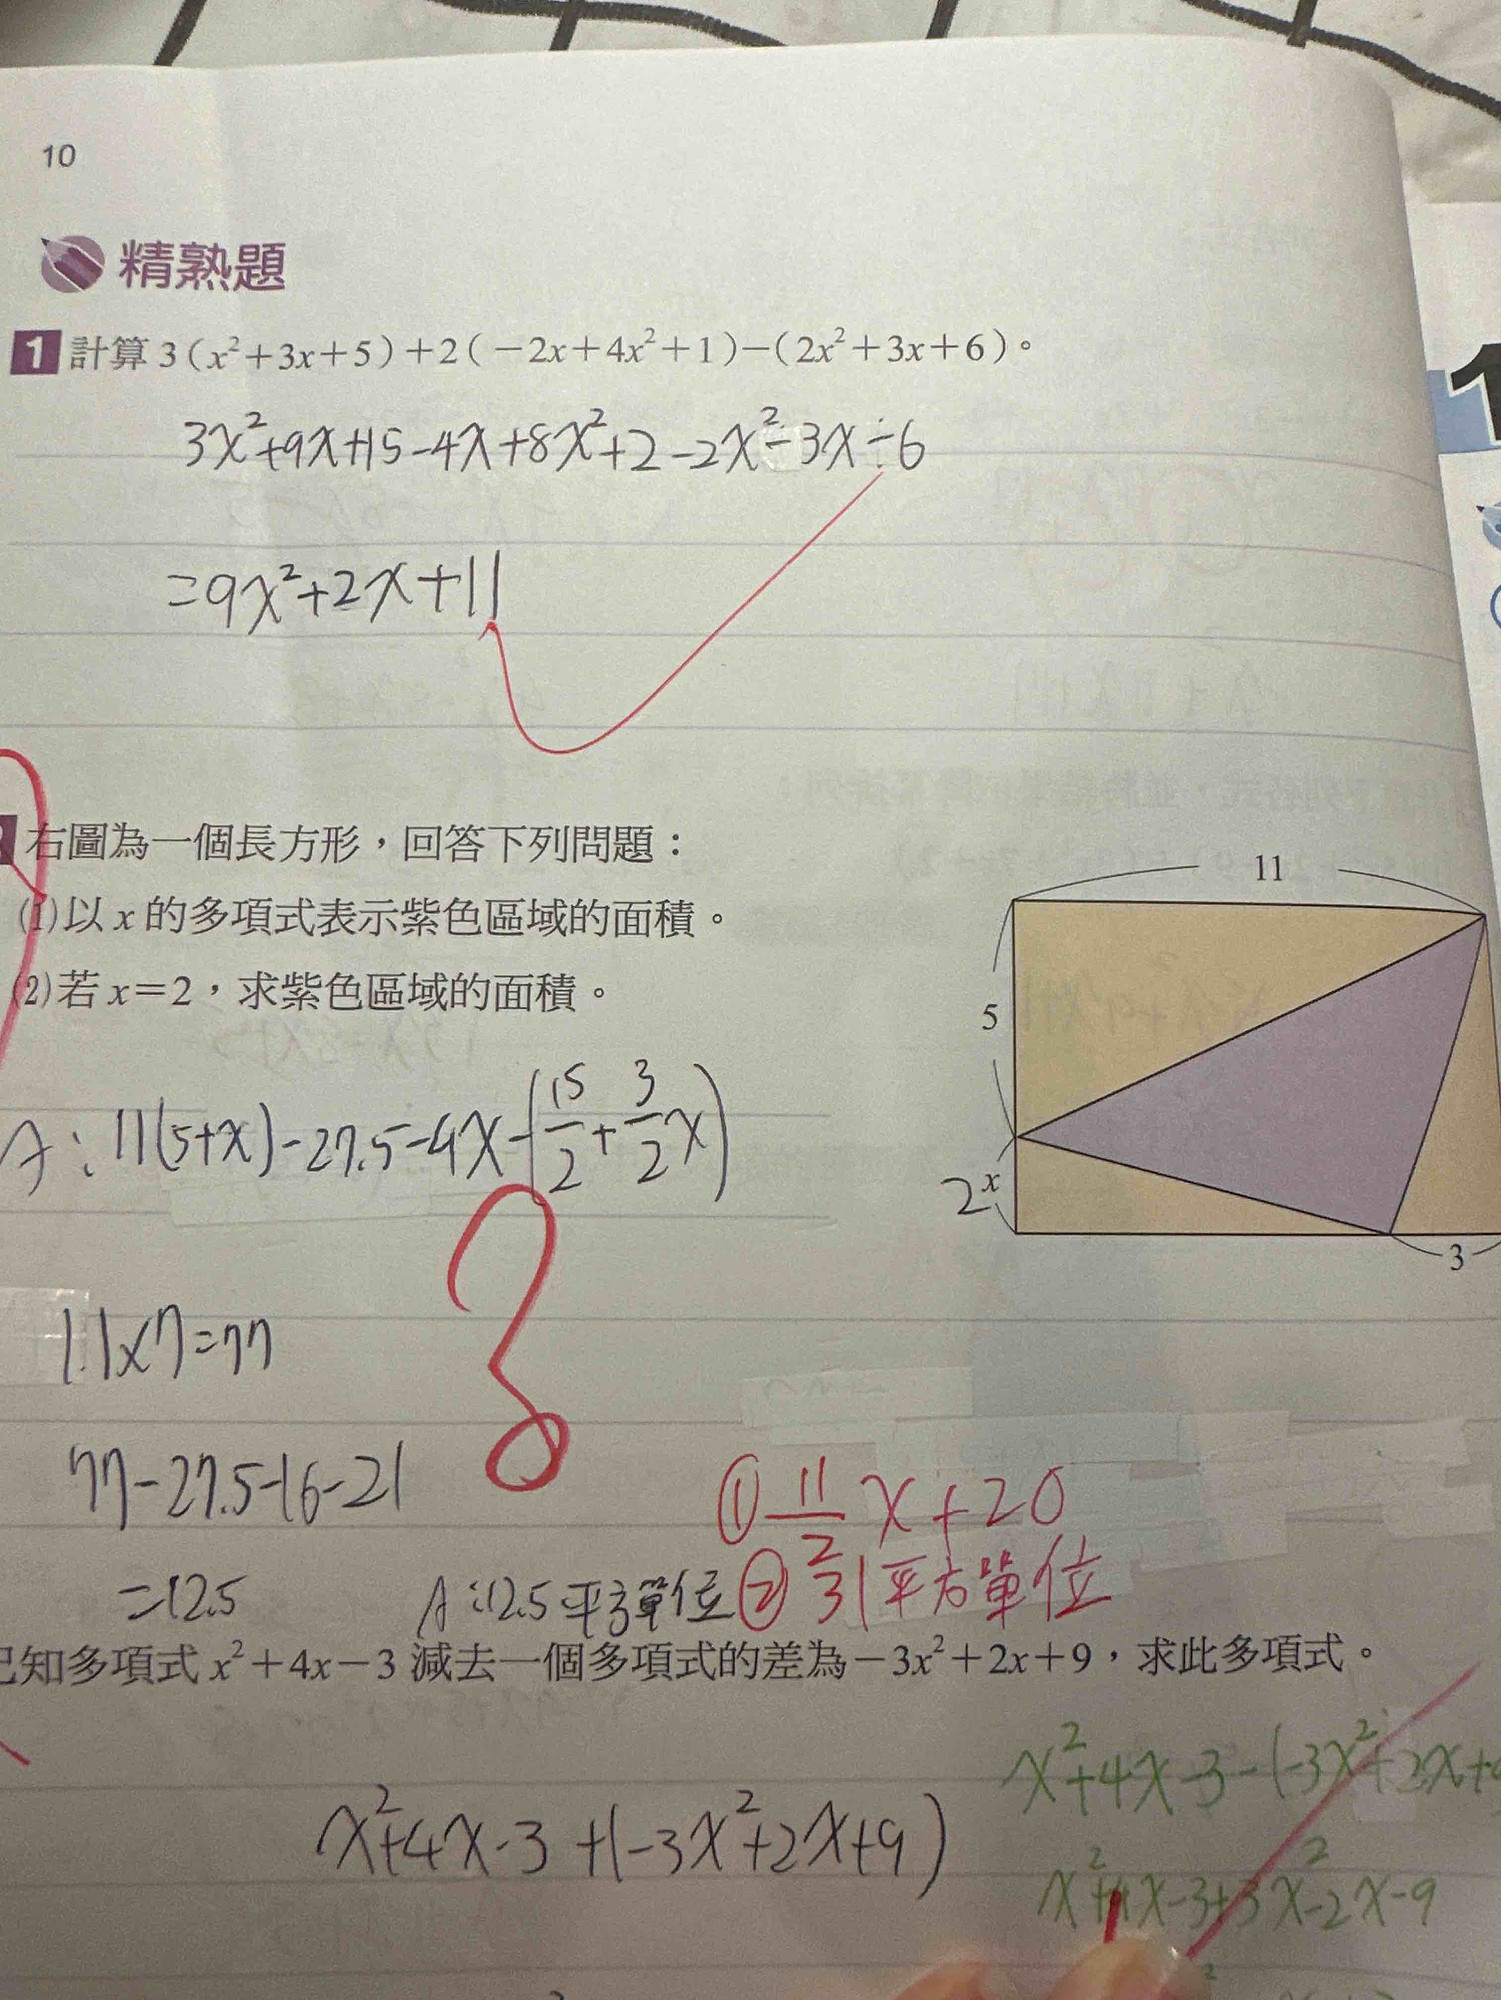 10
精熟題
1 計算 3(x²+3x+5)+2(-2x+4x²+1)-(2x²+3x+6)。
3x²+9x+15-4x+8x²+2-2x²-3x-6
=9x²+2x+11
右圖為一個長方形，回答下列問題：
(1)以 x 的多項式表示紫色區域的面積。
(2)若 x=2，求紫色區域的面積。
11
5
2 x
3
A: 11(5+x)-27.5-4x-(15/2+3/2x)
11x7=77
77-27.5-16-21
=12.5
A:12.5平方單位
① 11/2 x+20
② 31平方單位
已知多項式 x²+4x-3 減去一個多項式的差為 -3x²+2x+9，求此多項式。
x²+4x-3+(-3x²+2x+9)
x²+4x-3-(-3x²+2x+9
x²+4x-3+3x²-2x-9